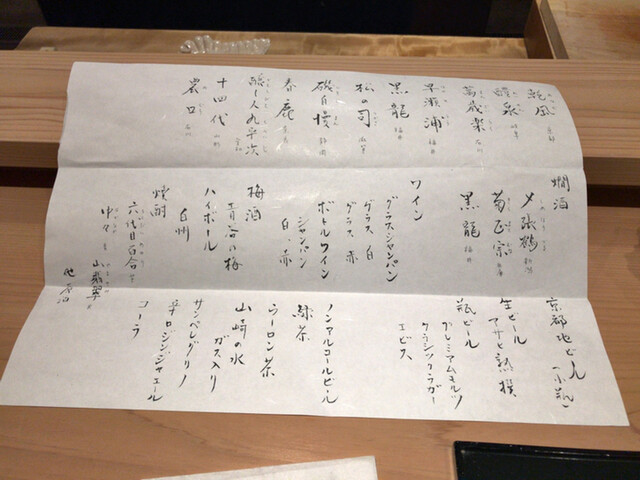 醴泉
萬歳楽 石川
早瀬浦 福井
黒龍 福井
松の司 滋賀
磯自慢 静岡
春鹿 奈良
醸し人九平次
十四代 山形
農口 石川
燗酒
〆張鶴 新潟
菊正宗 兵庫
黒龍 福井
ワイン
グラスシャンパン
グラス 白
グラス 赤
ボトルワイン
シャンパン
白、赤
梅酒
青谷の梅
ハイボール
白州
焼酎
六代目百合 芋
山翡翠 米
中々 麦
他有
京都地ビール
(小瓶)
生ビール
アサヒ熟撰
瓶ビール
プレミアムモルツ
クラシックラガー
エビス
ノンアルコールビール
緑茶
ウーロン茶
山崎の水
ガス入り
サンペレグリノ
辛口ジンジャエール
コーラ